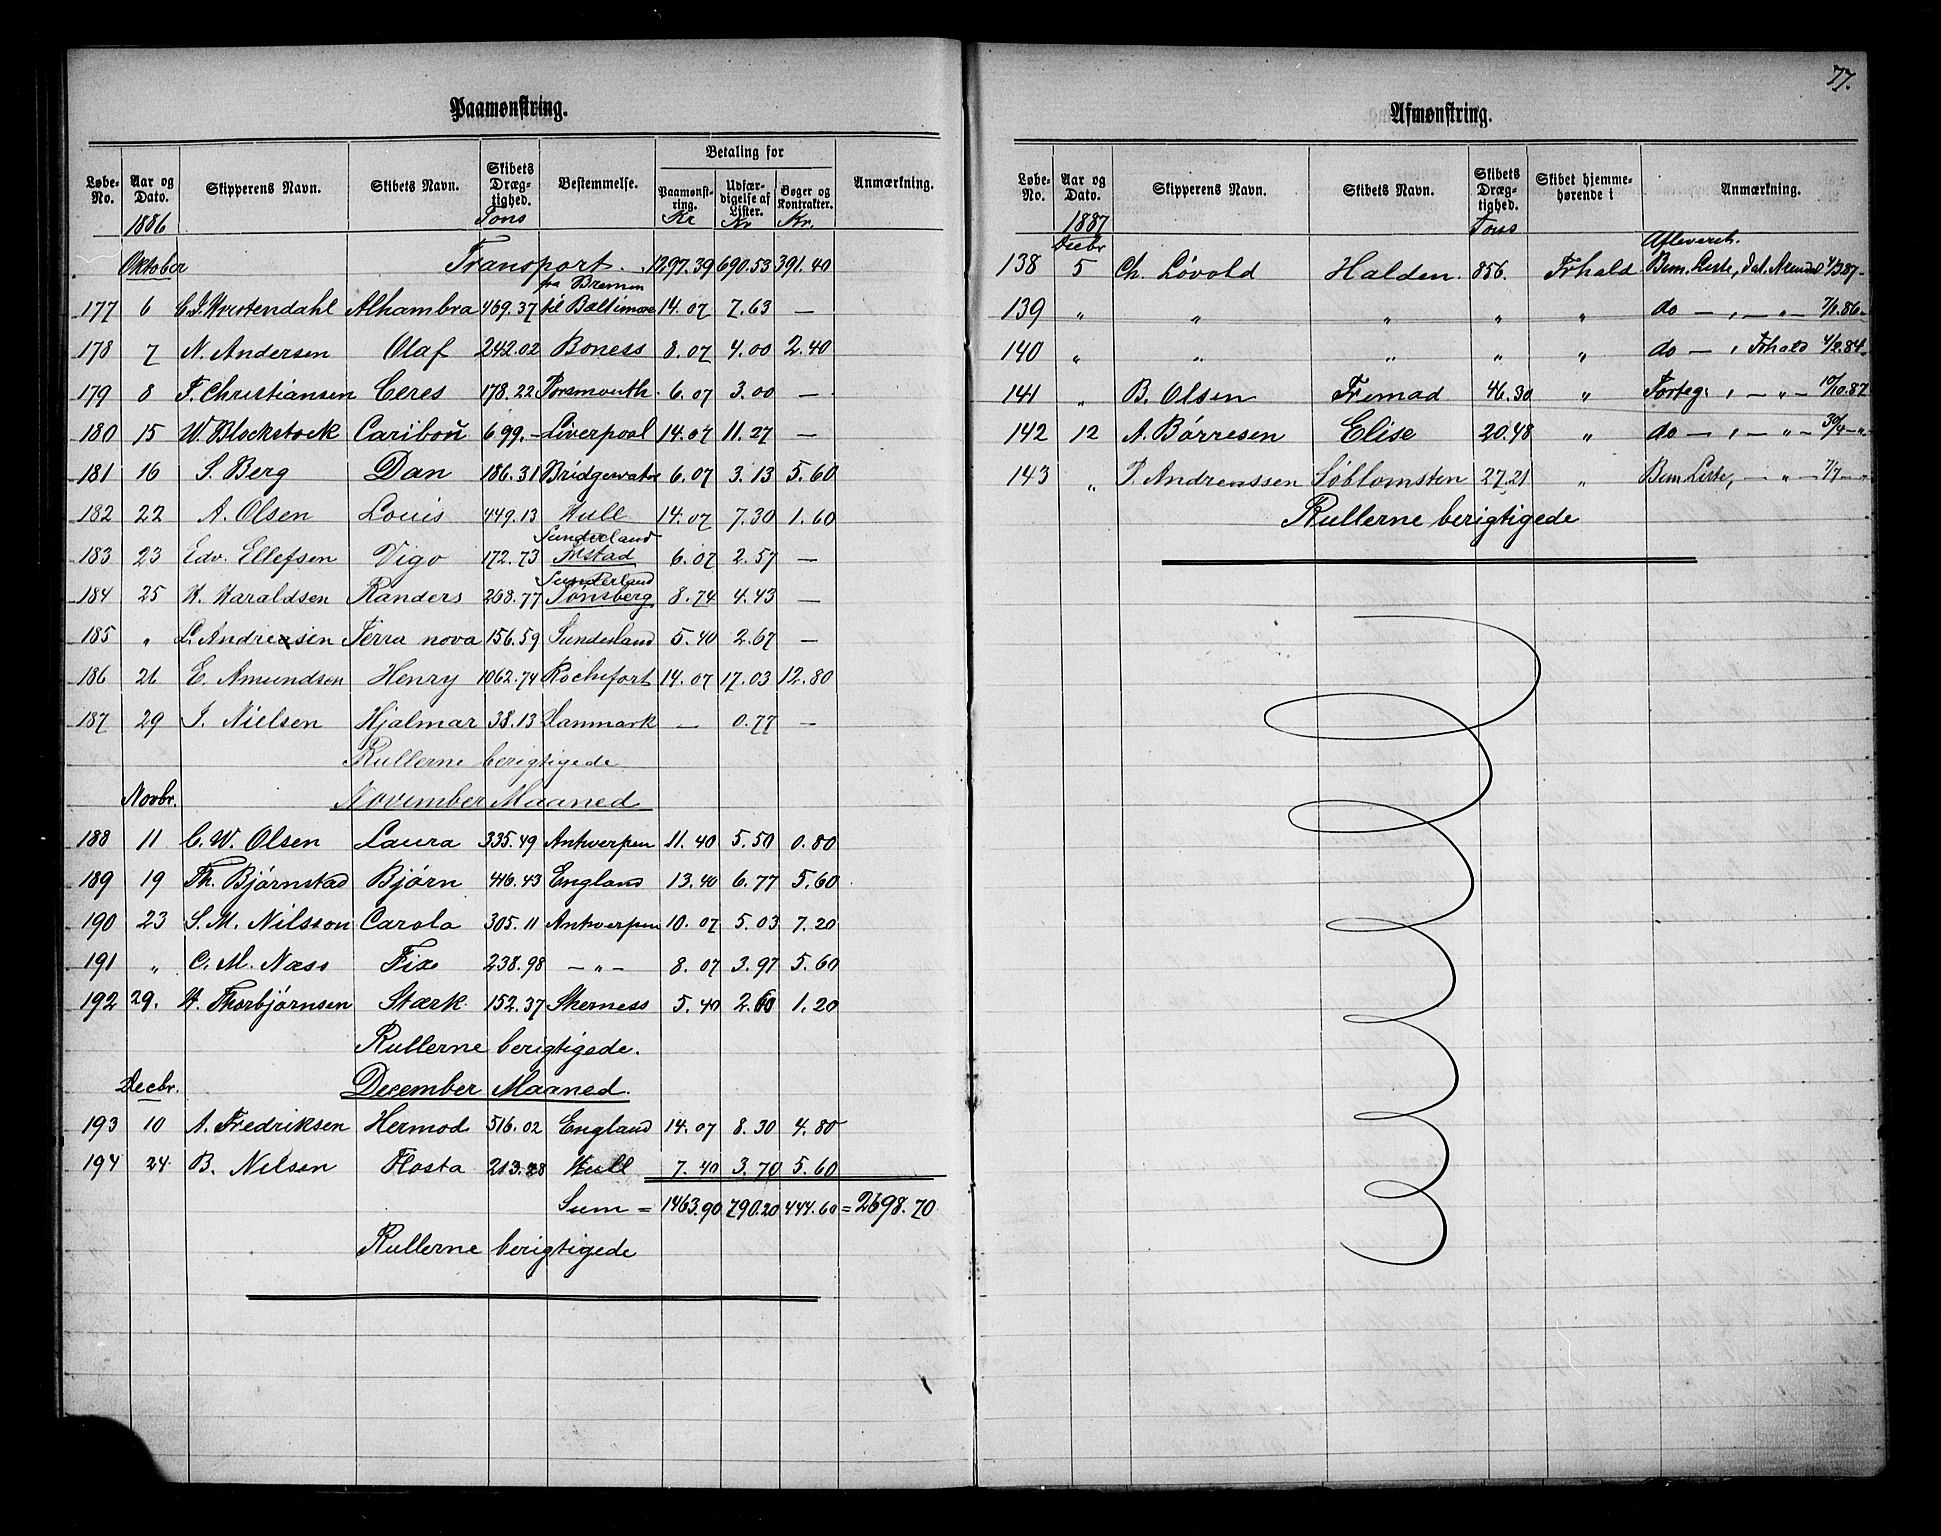 Paamønstring.
Løbe-No. | Aar og Dato. | Skipperens Navn. | Skibets Navn. | Skibets Dræg-tighed. | Bestemmelse. | Betaling for | Paamønst-ring. | Udfær-digelse af Lister. | Bøger og Kontrakter. | Anmærkning.
1886 Tons Kr Kr Kr.
Oktober Transport. 1297.39 690.53 391.40
fra Bremen
177 6 Alhambra 469.37 til Baltimore 14.07 7.63 —
178 7 N. Andersen Olaf 242.02 Boness 8.07 4.00 2.40
179 8 F. Christiansen Ceres 178.22 Porsmouth 6.07 3.00 —
180 15 W. Blockstock Caribou 699.— Liverpool 14.07 11.27 —
181 16 S. Berg Dan 186.31 Bridgewater 6.07 3.13 5.60
182 22 A. Olsen Louis 449.13 Hull 14.07 7.30 1.60
Sunderland
183 23 Edv. Ellefsen Vigo 172.73 6.07 2.57 —
Sunderland
184 25 H. Haraldsen Randers 268.77 Tønsberg 8.74 4.43 —
185 " L. Andreasen Terra nova 156.59 Sunderland 5.40 2.67 —
186 26 E. Amundsen Henry 1062.74 Rochefort 14.07 17.03 12.80
187 29 J. Nielsen Hjalmar 38.13 Danmark — 0.77 —
Rullerne berigtigede
Novbr. November Maaned
188 11 C. W. Olsen Laura 335.49 Antverpen 11.40 5.50 0.80
189 19 Th. Bjørnstad Bjørn 416.43 England 13.40 6.77 5.60
190 23 S. M. Nilsson Carola 305.11 Antverpen 10.07 5.03 7.20
191 " C. M. Næss Fix 238.98 — " — 8.07 3.97 5.60
192 29. H. Thorbjørnsen Stærk 152.37 Sherness 5.40 2.60 1.20
Rullerne berigtigede.
Decbr. December Maaned.
193 10 A. Fredriksen Hermod 516.02 England 14.07 8.30 4.80
194 24 B. Nilsen Flosta 213.28 Hull 7.40 3.70 5.60
Sum = 1463.90 790.20 444.60 = 2698.70
Rullerne berigtigede
77.
Afmønstring.
Løbe-No. | Aar og Dato. | Skipperens Navn. | Skibets Navn. | Skibets Dræg-tighed. | Skibet hjemme-hørende i | Anmærkning.
1887 Tons
Decbr Afleveret.
138 5 Ch. Løvold Halden. 856. Frhald Bem. Liste, dat. Arendal 4/3 87
139 " " " " " do — , — " — 7/1.86
140 " " " " " do — , Frhald 4/2.84
141 " B. Olsen Fremad 46.30 " Forteg. , — " — 10/10.87
142 12 A. Børresen Elise 20.48 " do — , — " — 30/4 — "
143 " P. Andreassen Søblomsten 27.21 " Bem. Liste, — " — 7/7 — "
Rullerne berigtigede